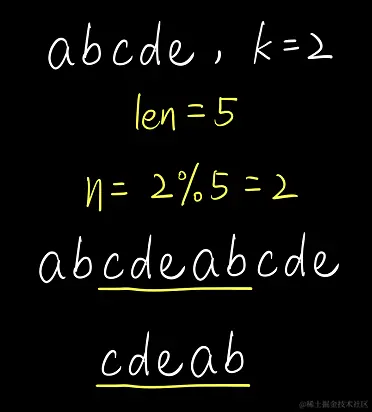 abcde, k=2
len=5
n= 2%5=2
abcdeabcde
cdeab
@稀土掘金技术社区